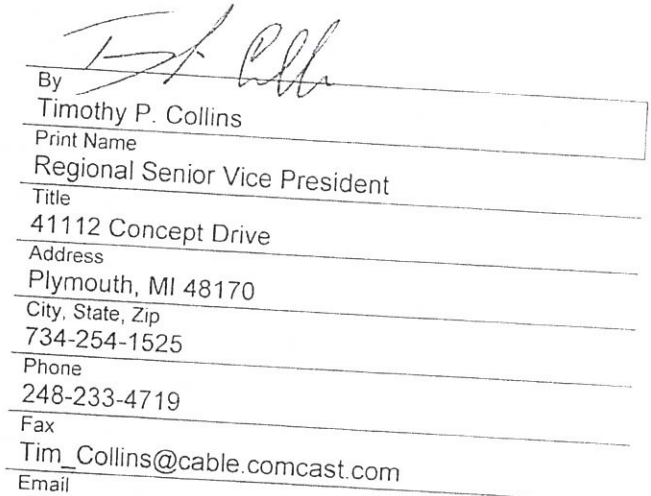 By
Timothy P. Collins
Print Name
Regional Senior Vice President
Title
41112 Concept Drive
Address
Plymouth, MI 48170
City, State, Zip
734-254-1525
Phone
248-233-4719
Fax
Tim_Collins@cable.comcast.com
Email